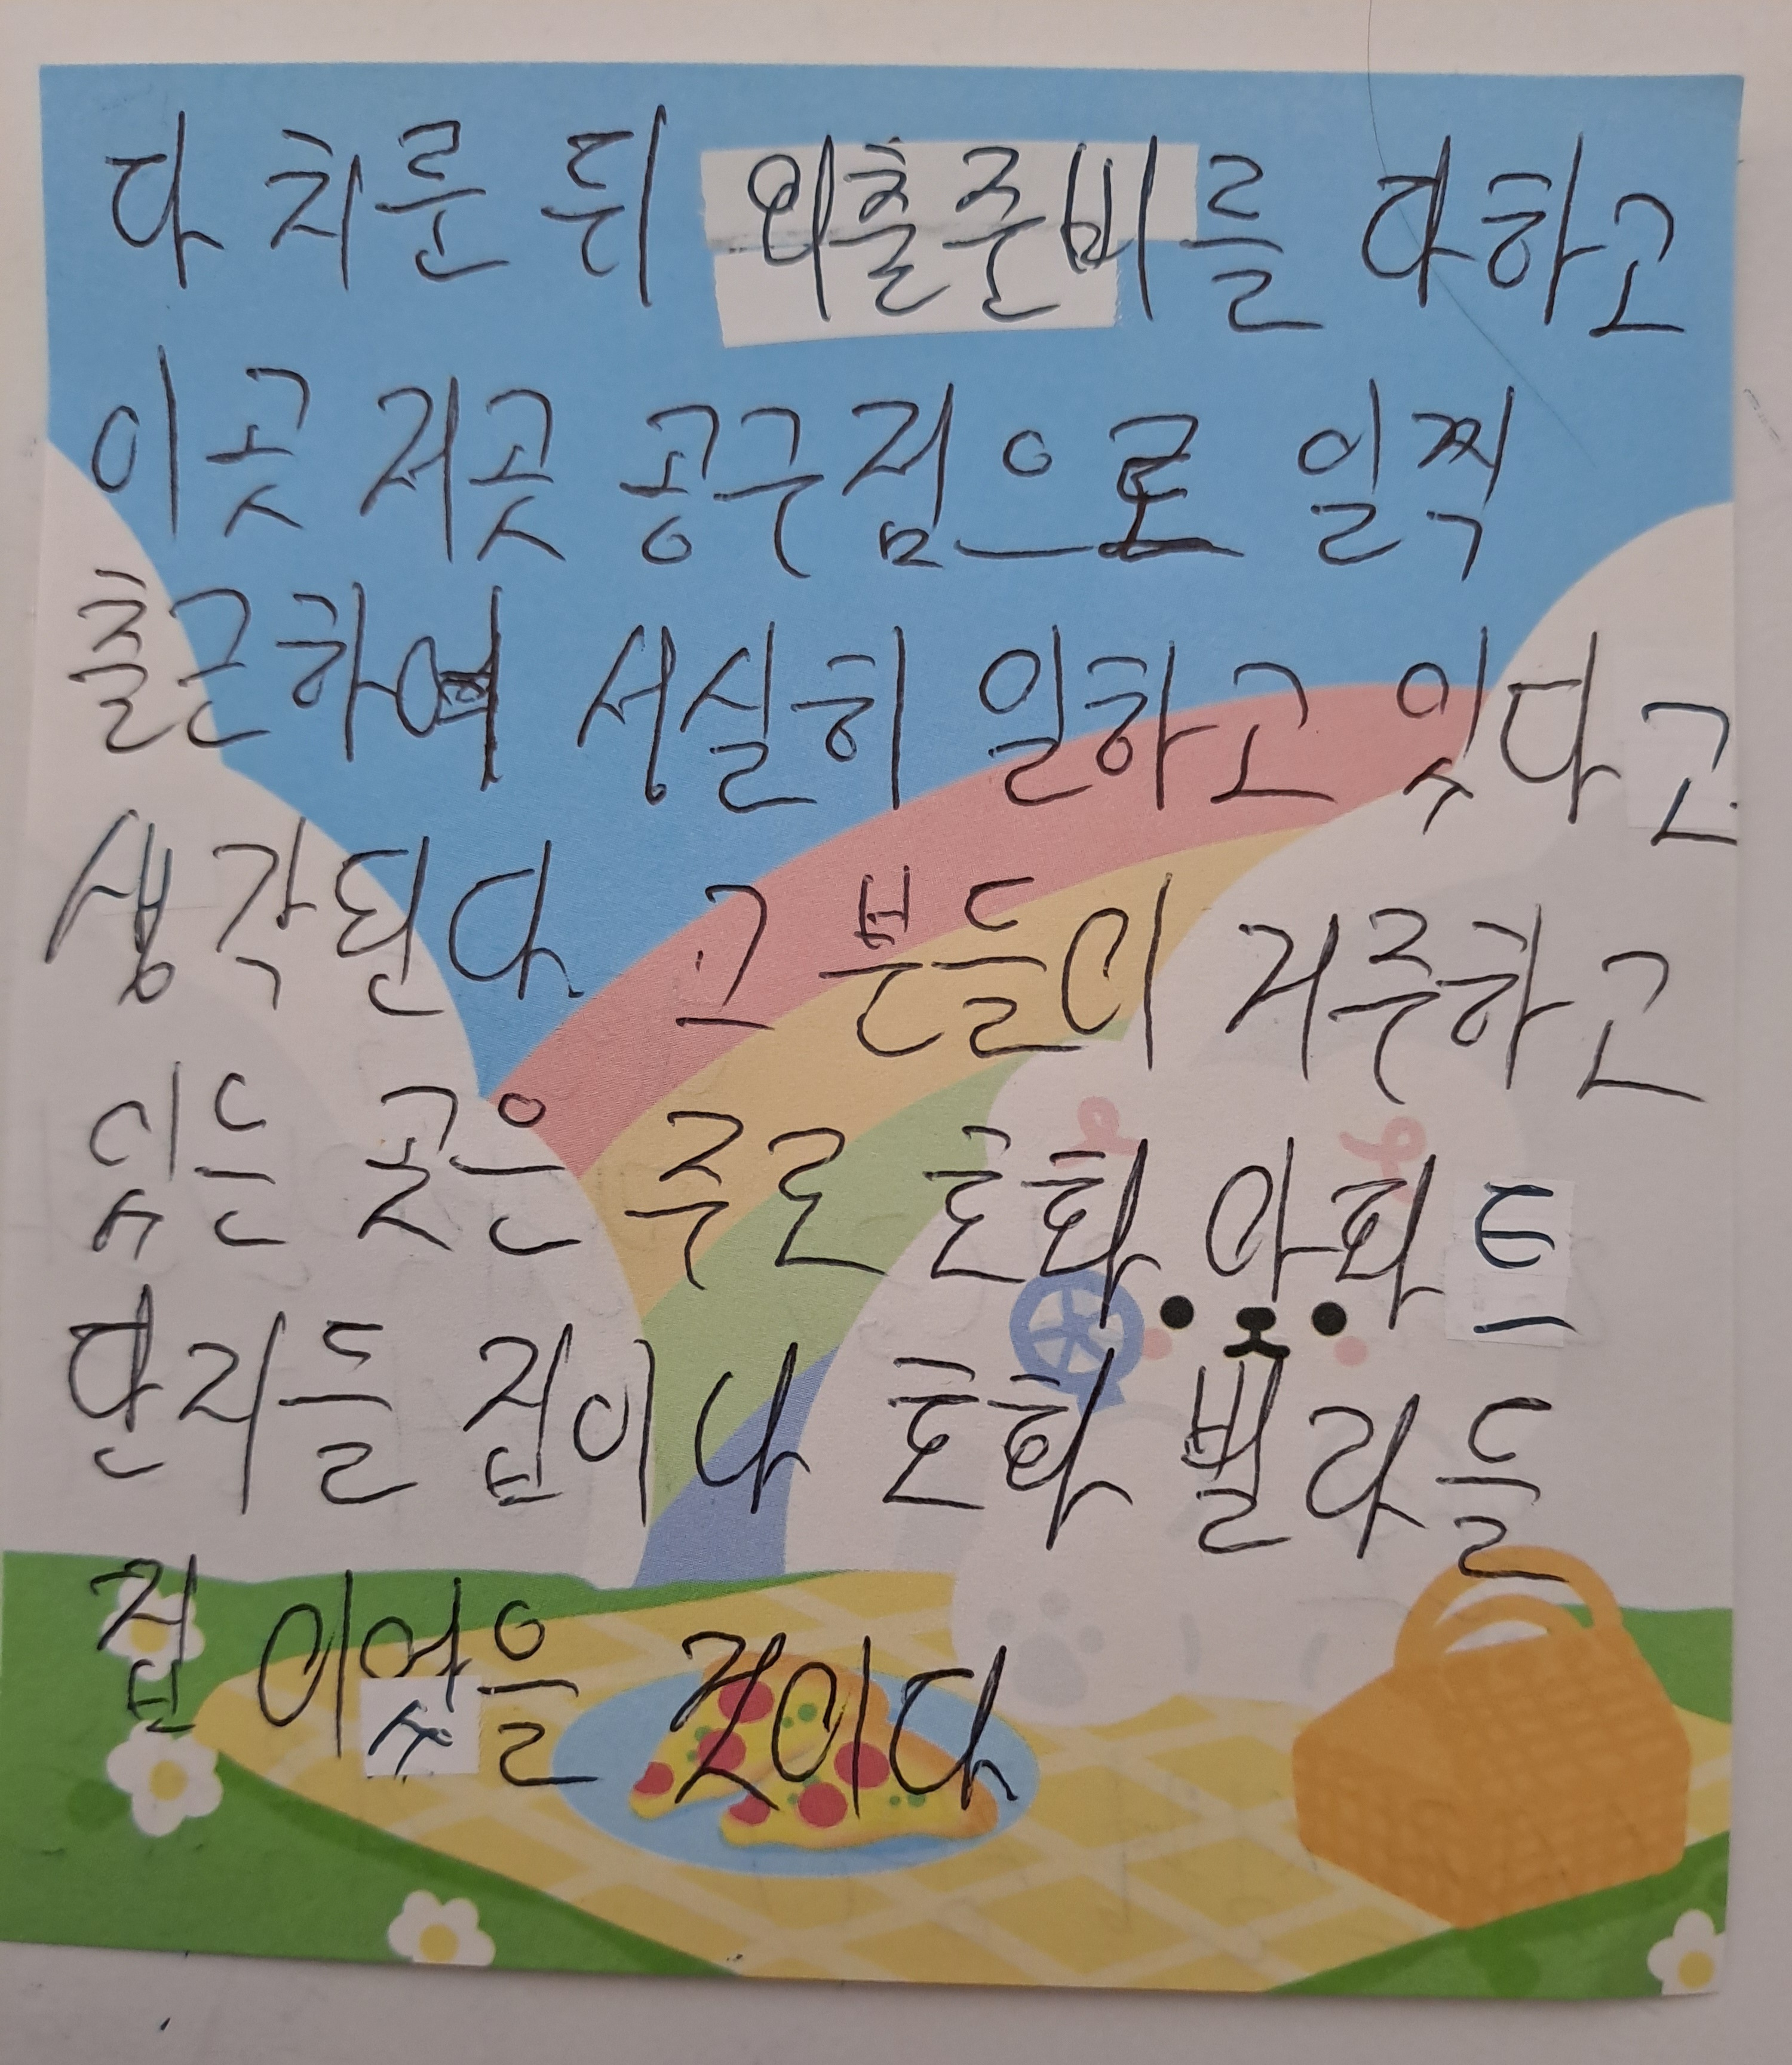 다 치룬 뒤 외출준비를 다하고
이곳 저곳 공구점으로 일찍
출근하여 성실히 일하고 있다고
생각된다. 그 분들이 거주하고
있는 곳은 주로 호화 아파트
단지들 집이나 호화 빌라들
집 이었을 것이다